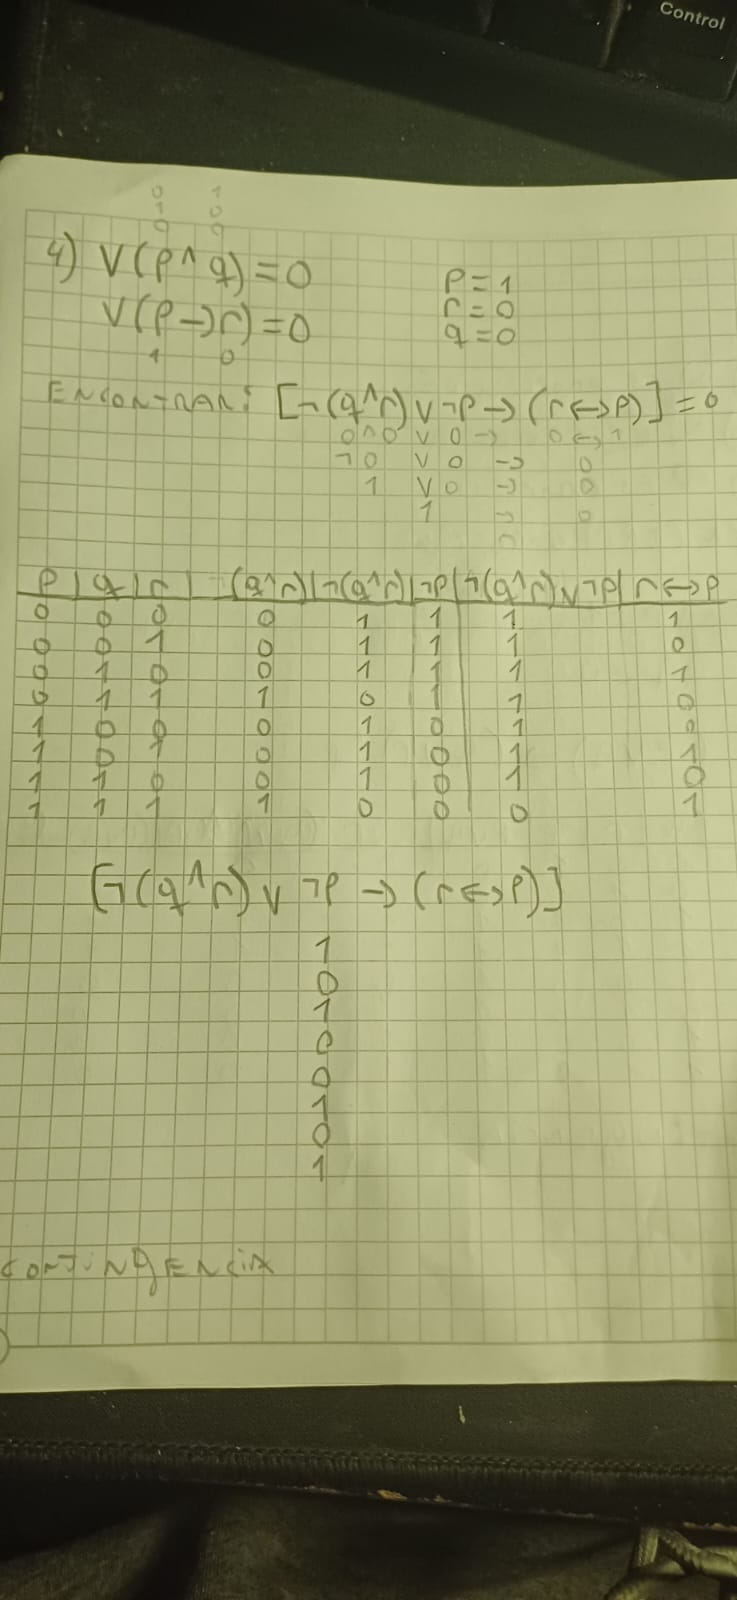 Control
0 1
1 0
0 0
4) V(p ^ q) = 0 p = 1
V(p → r) = 0 r = 0
1 0 q = 0
ENCONTRAR: [¬(q ^ r) ∨ ¬p → (r ↔ p)] = 0
0 ^ 0 ∨ 0 → 0 ↔ 1
¬0 ∨ 0 → 0
1 ∨ 0 → 0
1 → 0
0
p | q | r | (q ^ r) | ¬(q ^ r) | ¬p | ¬(q ^ r) ∨ ¬p | r ↔ p
0 0 0 0 1 1 1 1
0 0 1 0 1 1 1 0
0 1 0 0 1 1 1 1
0 1 1 1 0 1 1 0
1 0 0 0 1 0 1 0
1 0 1 0 1 0 1 1
1 1 0 0 1 0 1 0
1 1 1 1 0 0 0 1
[¬(q ^ r) ∨ ¬p → (r ↔ p)]
1
0
1
0
0
1
0
1
CONTINgENCIA